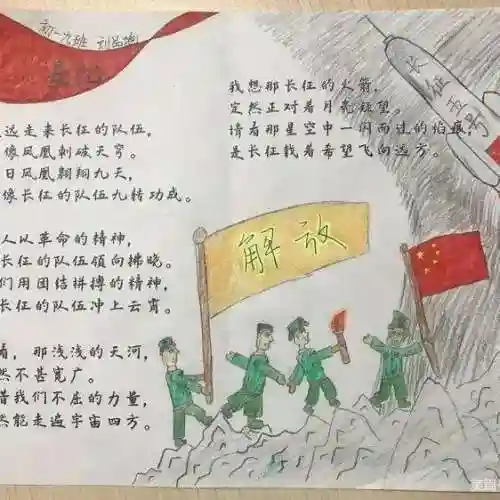 初一九班
长征
远走来长征的队伍，
像凤凰刺破天穹。
日凤凰翱翔九天，
像长征的队伍九转功成。
人以革命的精神，
长征的队伍领向拂晓。
们用团结拼搏的精神，
长征的队伍冲上云霄。
看，那浅浅的天河，
然不甚宽广。
着我们不屈的力量，
然能走遍宇宙四方。
我想那长征的火箭，
定然正对着月亮征望。
请看那星空中一闪而过的焰痕，
是长征载着希望飞向远方。
长征五号
解放